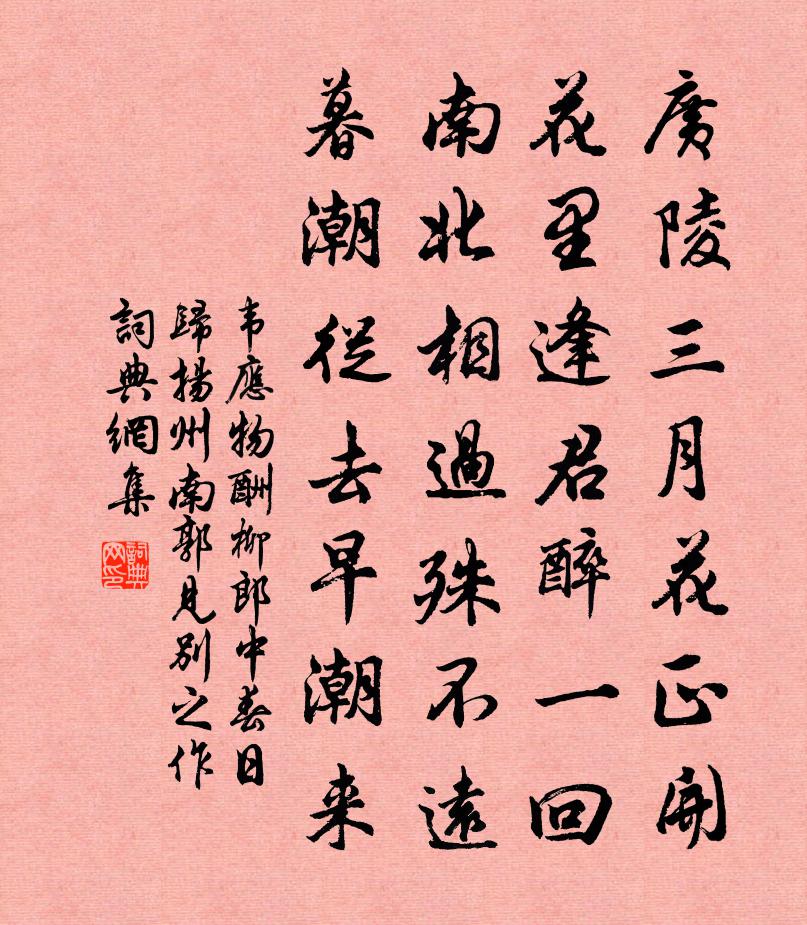 廣陵三月花正開
花里逢君醉一回
南北相過殊不遠
暮潮從去早潮来
韦應物酬柳郎中春日
歸揚州南郭見別之作
詞典網集
詞典網印